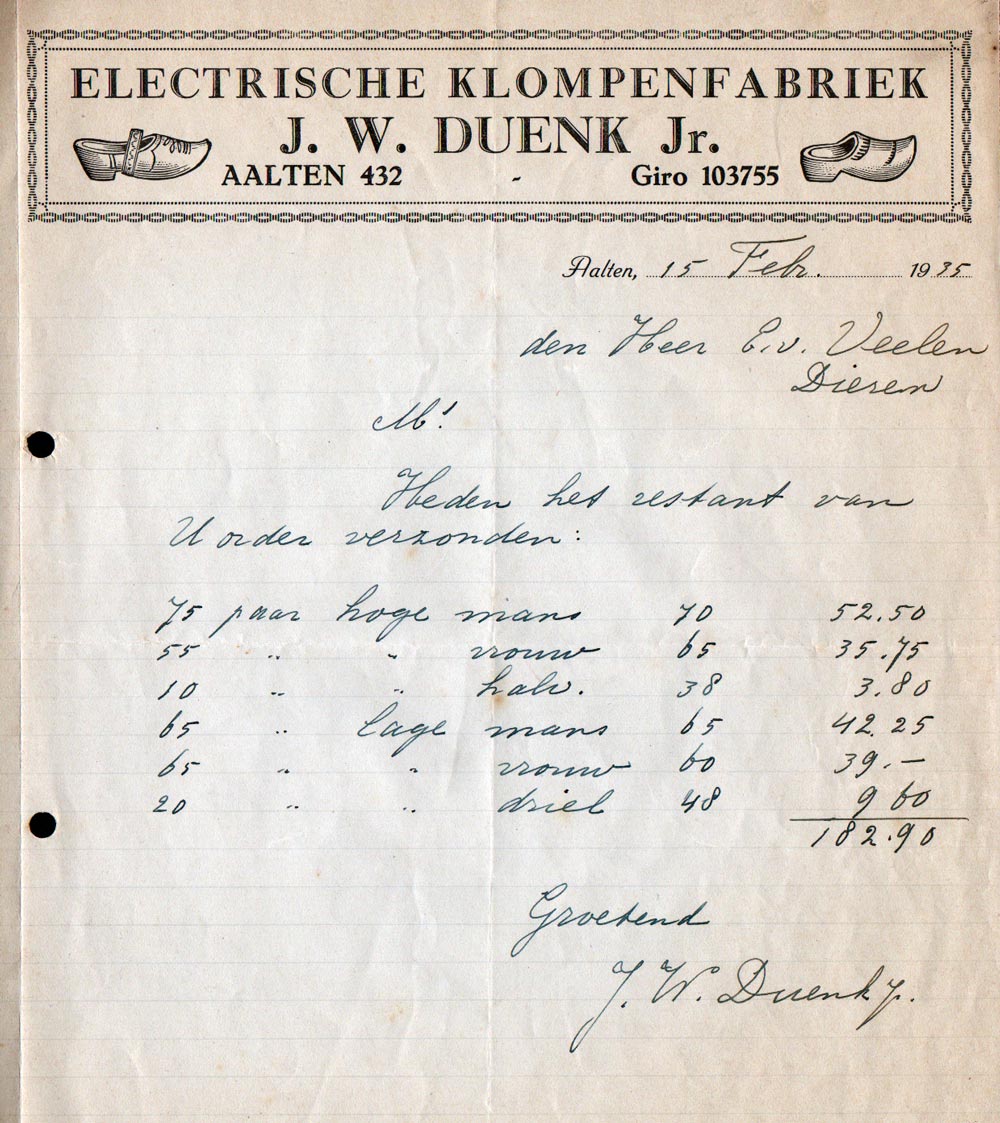 ELECTRISCHE KLOMPENFABRIEK
J. W. DUENK Jr.
AALTEN 432 - Giro 103755
Aalten, 15 Febr. 1935
den Heer E. v. Veelen
Dieren
M!
Heden het restant van
U order verzonden:
75 paar hoge mans 70 52.50
55 " " vrouw 65 35.75
10 " " halv. 38 3.80
65 " lage mans 65 42.25
65 " " vrouw 60 39.-
20 " " driel 48 9 60
182.90
Groetend
J. W. Duenk Jr.